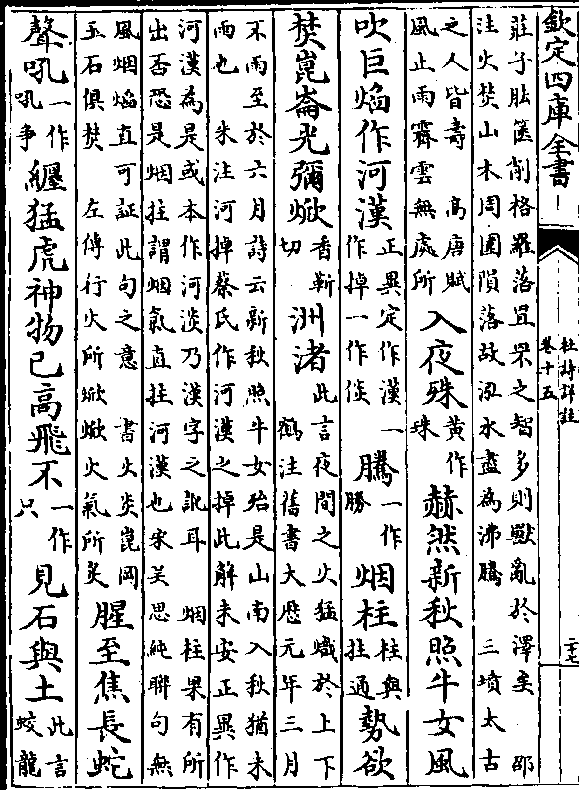 欽定四庫全書
杜詩詳註
卷十五
二十七
莊子胠篋削格羅落罝罘之智多則獸亂於澤矣 邵
注火焚山木周圍隕落故泓水盡為沸騰 三墳太古
之人皆壽 高唐賦
風止雨霽雲無處所
入夜殊
黃作
珠
赫然新秋照牛女風
吹巨焰作河漢
正異定作漢一
作掉一作淡
騰
一作
勝
烟柱
柱與
拄通
勢欲
焚崑崙光彌焮
香靳
切
洲渚
此言夜間之火猛熾於上下
鶴注舊書大厯元年三月
不雨至於六月詩云新秋照牛女殆是山南入秋猶未
雨也 朱注河掉蔡氏作河漢之掉此解未安正異作
河漢為是或本作河淡乃漢字之訛耳 烟柱果有所
出否恐是烟拄謂烟氣直拄河漢也宋吴思純聯句無
風烟焰直可証此句之意 書火炎崑岡
玉石俱焚 左傳行火所焮焮火氣所炙
腥至焦長蛇
聲吼
一作
吼争
纏猛虎神物已高飛不
一作
只
見石與土
此言
蛟龍